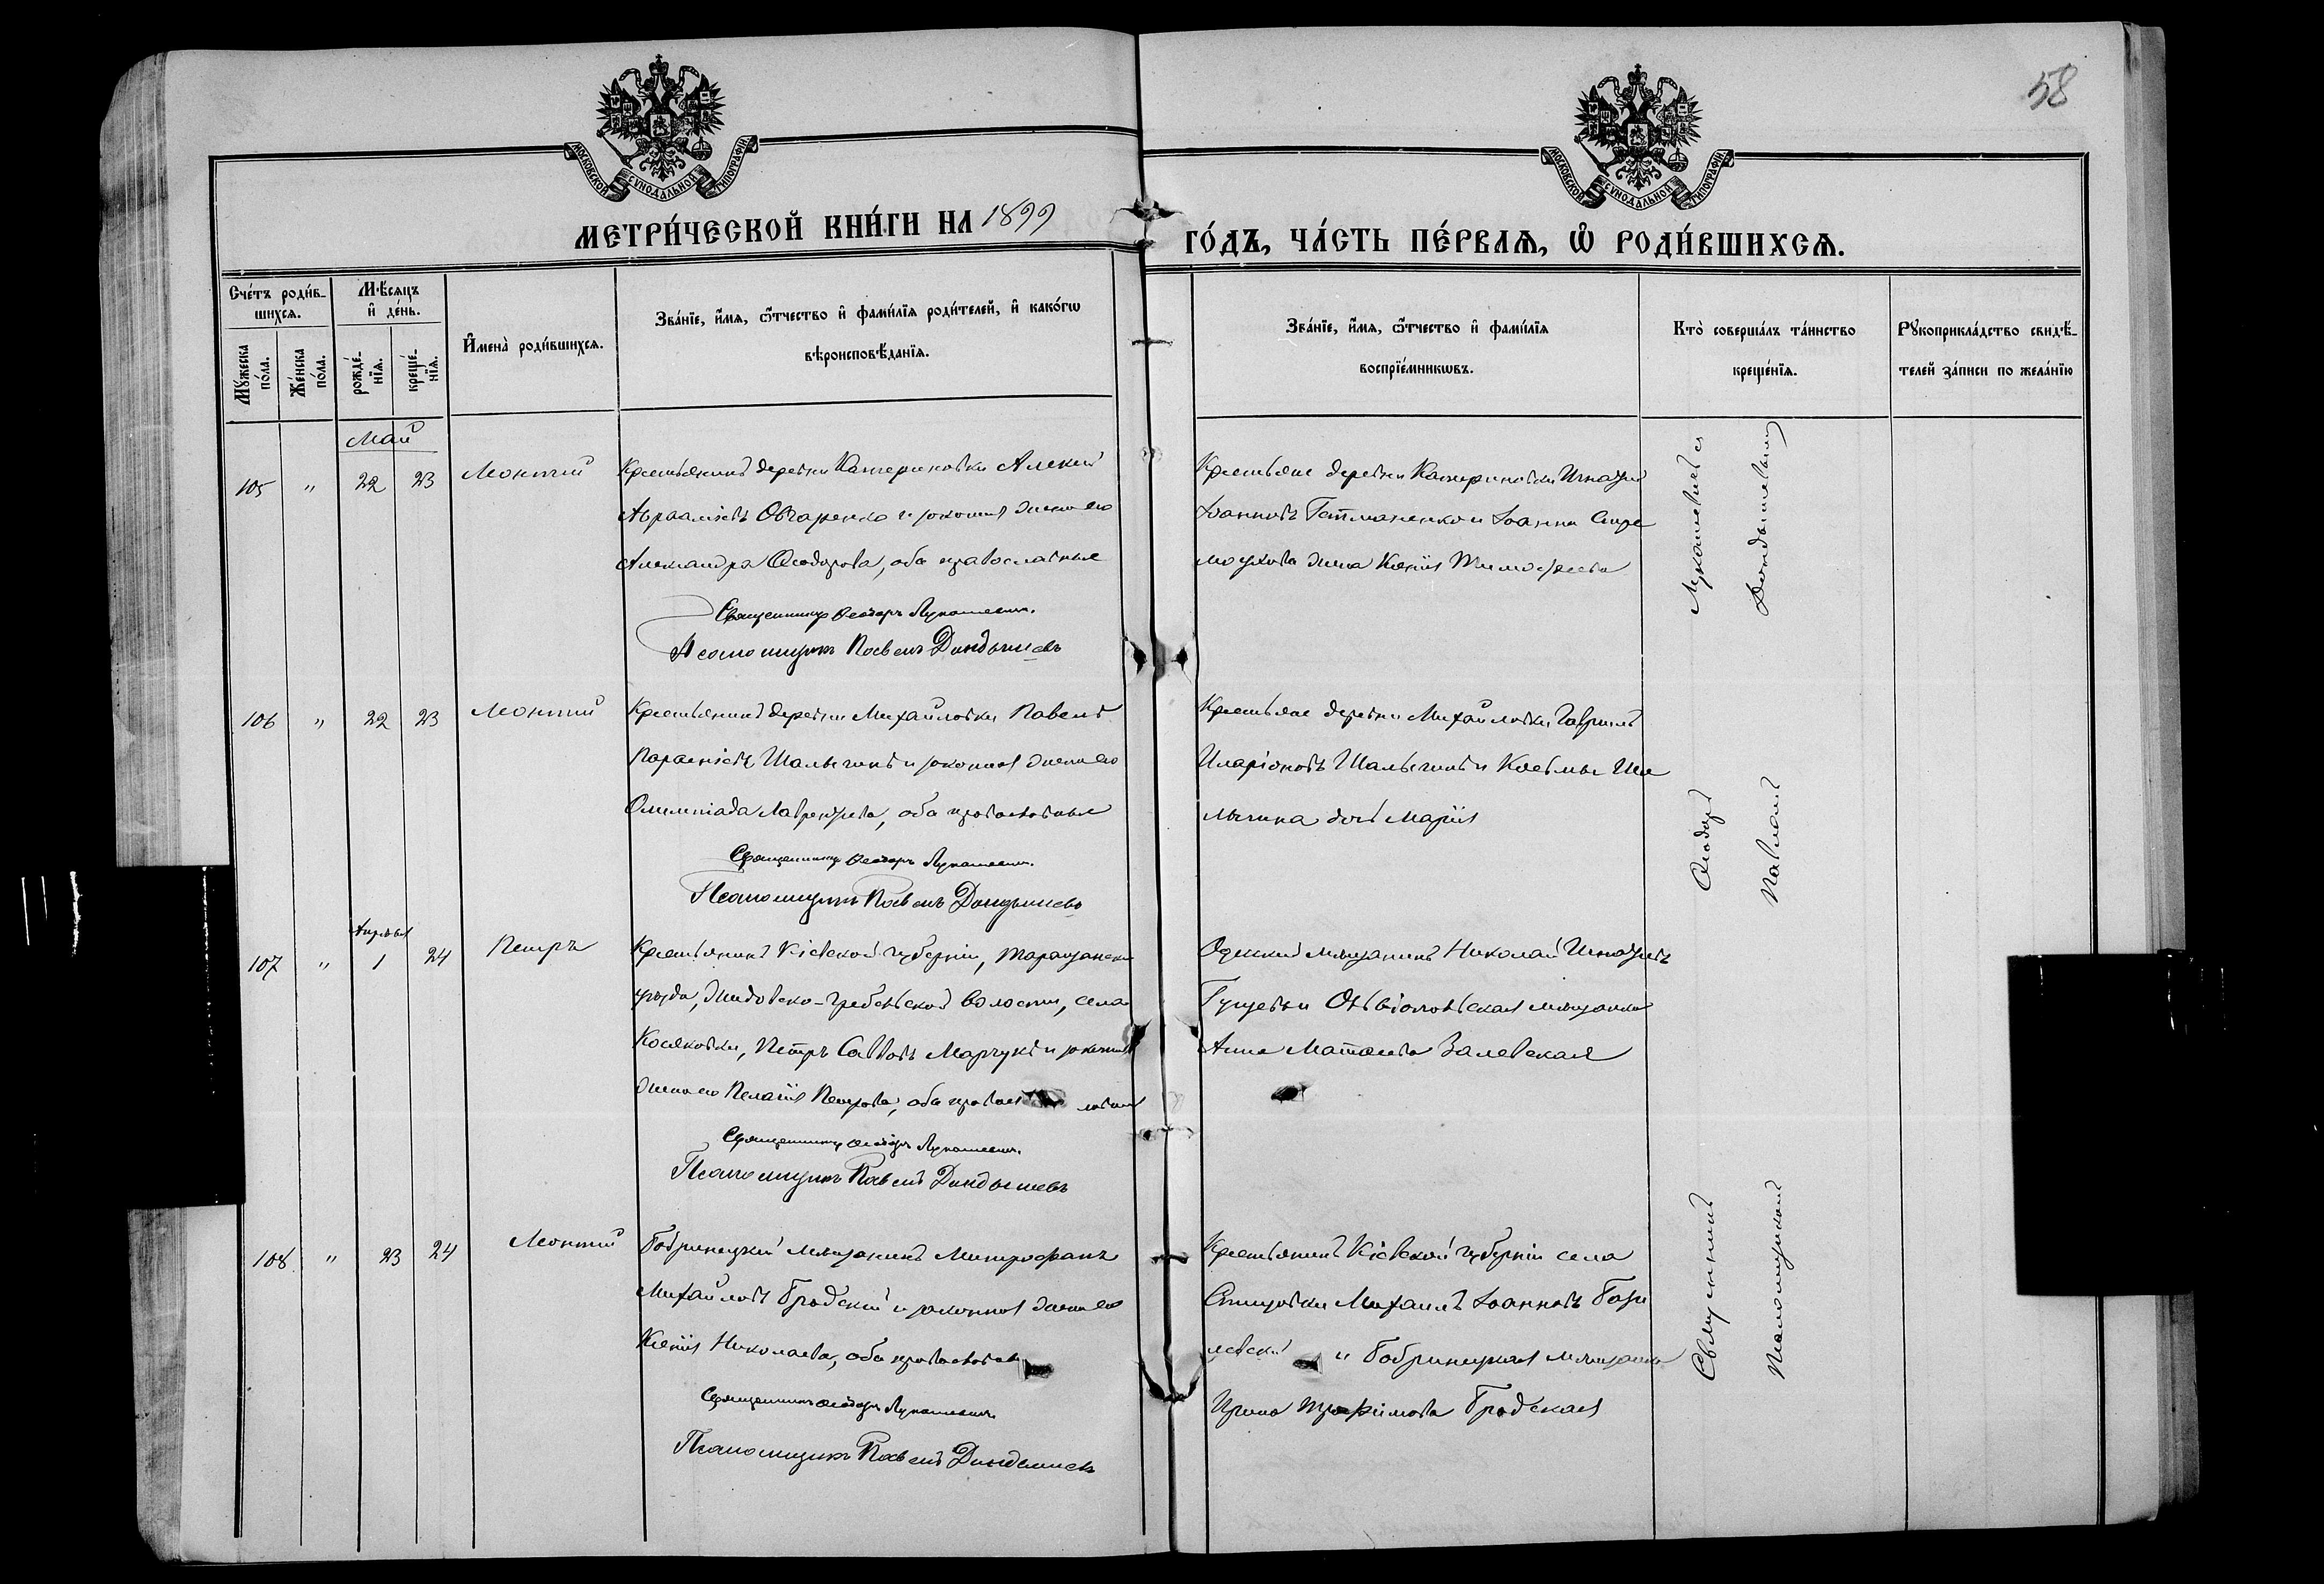 58
МОСКОВСКОЙ СѴНОДАЛЬНОЙ ТИПОГРАФІИ.
МОСКОВСКОЙ СѴНОДАЛЬНОЙ ТИПОГРАФІИ.
МЕТРИ́ЧЕСКОЙ КНИ́ГИ НА 1899
ГО́ДЪ, ЧА́СТЬ ПЕ́РВАѦ, Ѽ РОДИ́ВШИХСѦ.
Сче́тъ роди́в-
шихсѧ.
Мꙋ́жеска
по́ла.
Же́нска
по́ла.
Мѣ́сѧцъ
и҆ де́нь.
рожде́-
нїѧ.
креще́-
нїѧ.
И҆мена̀ роди́вшихсѧ.
Зва́нїе, и҆́мѧ, ѻ҆́тчество и҆ фами́лїѧ роди́телей, и҆ како́гѡ
вѣроисповѣ́данїѧ.
Зва́нїе, и҆́мѧ, ѻ҆́тчество и҆ фами́лїѧ
воспрїе́мникѡвъ.
Кто̀ соверша́лъ та́инство
креще́нїѧ.
Рꙋкоприкла́дство свидѣ́-
телей за́писи по жела́нїю
Май
105 " 22 23 Леонтий
Крестьянинъ деревни Катериновки Алексий
Авраамовъ Овчаренко и законная жена его
Александра Ѳеодорова, оба православные
Священникъ Ѳеодоръ Лукашевичъ.
Псаломщикъ Павелъ Дондышевъ
Крестьяне деревни Катериновки Игнатій
Іоанновъ Гетманенко и Іоанна
жена Ксенія Тимофеева
106 " 22 23 Леонтий
Крестьянинъ деревни Михайловки Павелъ
Шалыгинъ и законная жена его
Олимпіада Лаврентьева, оба православные
Священникъ Ѳеодоръ Лукашевичъ.
Псаломщикъ Павелъ Дондышевъ
Крестьяне деревни Михайловки Гавриилъ
Иларіоновъ Шалыгинъ и Косьмы Ша
лыгина дочь Марія
Апрѣля
107 " 1 24 Петръ
Крестьянинъ Кіевской губерніи, Таращанского
уѣзда, Жидовско-Гребельской волости, села
Косяковки, Петръ Саввовъ Марчукъ и законная
жена его Пелагія Петрова, оба православные
Священникъ Ѳеодоръ Лукашевичъ.
Псаломщикъ Павелъ Дондышевъ
Одесский мѣщанинъ Николай Игнатьевъ
и мѣщанка
Анна Матѳеева Залевская
108 " 23 24 Леонтий
Бобринецкий мѣщанинъ Митрофанъ
Михайловъ Бродский и законная жена его
Ксенія Николаева, оба православные
Священникъ Ѳеодоръ Лукашевичъ.
Псаломщикъ Павелъ Дондышевъ
Крестьянинъ Кіевской губерніи села
Михаилъ Іоанновъ
левский и Бобринецкая мѣщанка
Ирина Трофимова Бродская
Священникъ Ѳеодоръ Лукашевичъ съ
Псаломщикомъ Павломъ Дондышевымъ